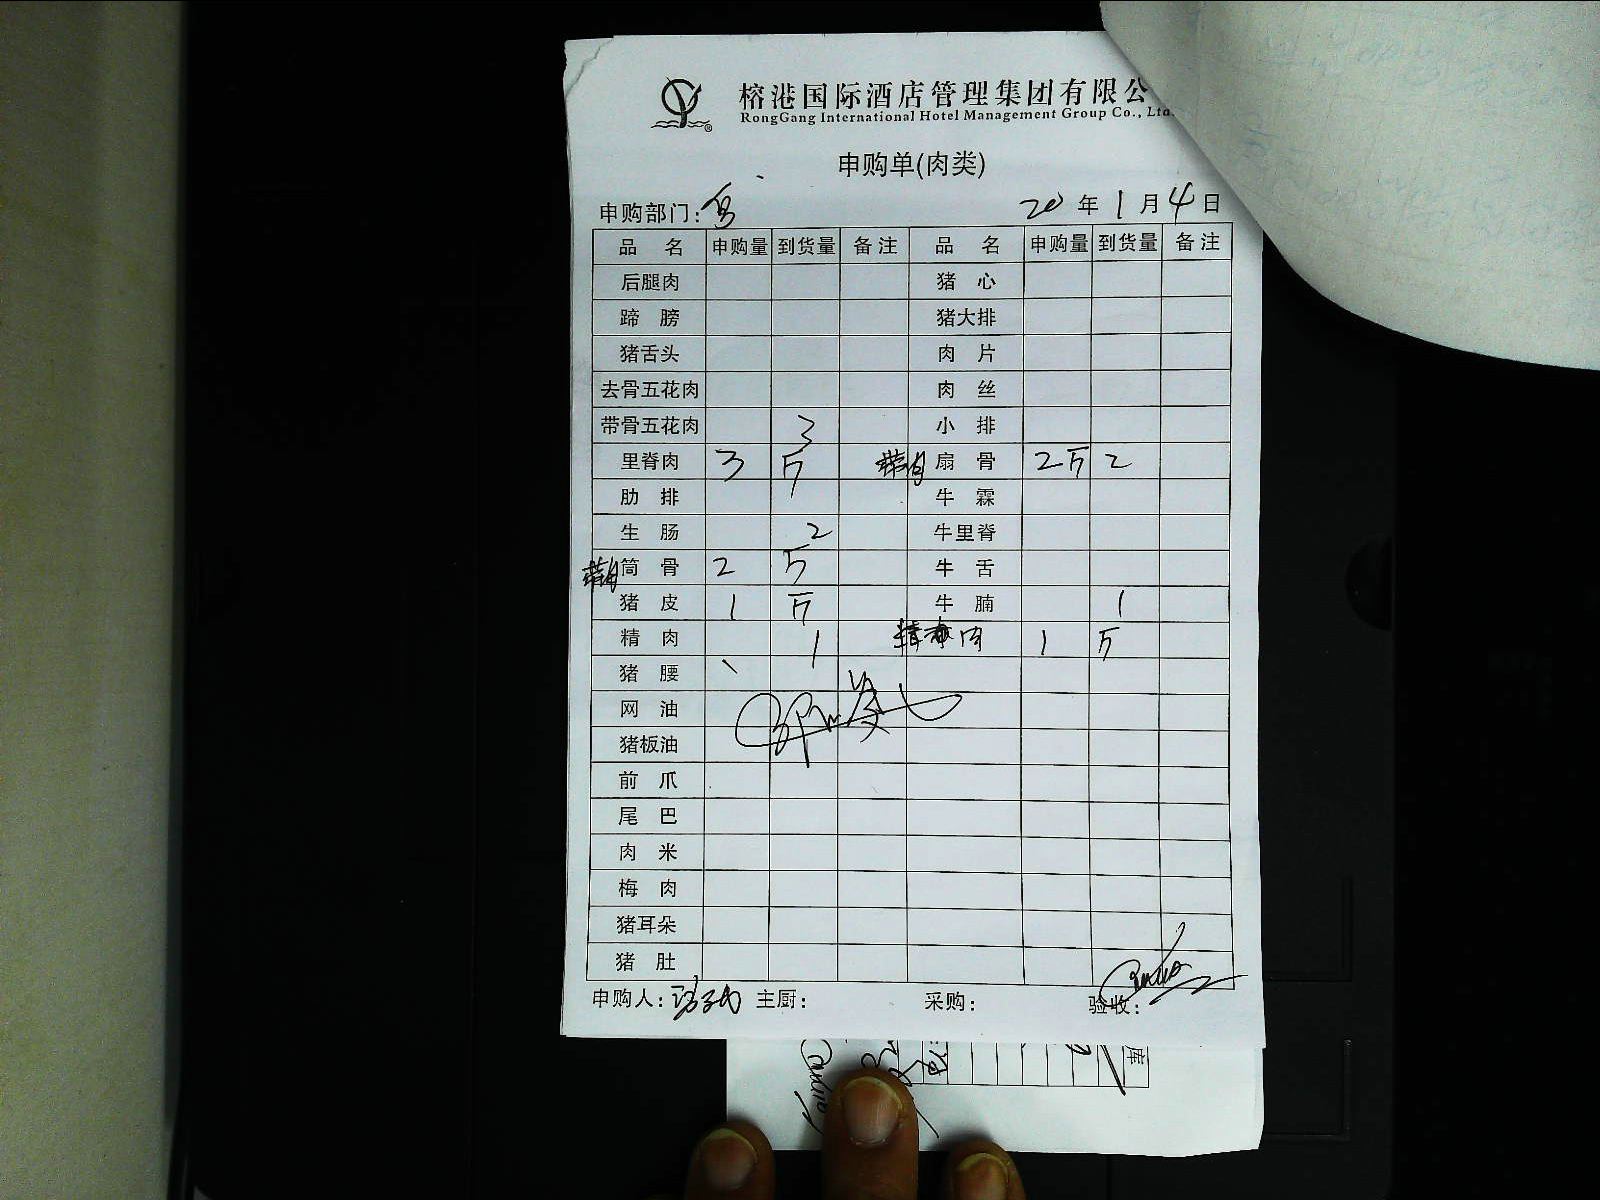 榕港国际酒店管理集团有限公
RongGang International Hotel Management Group Co., Ltd.
申购单(肉类)
申购部门:
20 年 1 月 4 日
品 名 申购量 到货量 备注 品 名 申购量 到货量 备注
后腿肉 猪 心
蹄 膀 猪大排
猪舌头 肉 片
去骨五花肉 肉 丝
带骨五花肉 3 小 排
里脊肉 3 斤 带肉 扇 骨 2斤 2
肋 排 牛 霖
生 肠 2 牛里脊
带肉 筒 骨 2 斤 牛 舌
猪 皮 1 斤 牛 腩 1
精 肉 1 精 肉 1 斤
猪 腰
网 油
猪板油
前 爪
尾 巴
肉 米
梅 肉
猪耳朵
猪 肚
申购人: 主厨: 采购: 验收:
库